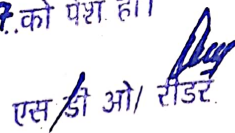 7.को पेश हो।
एस डी ओ/ रीडर